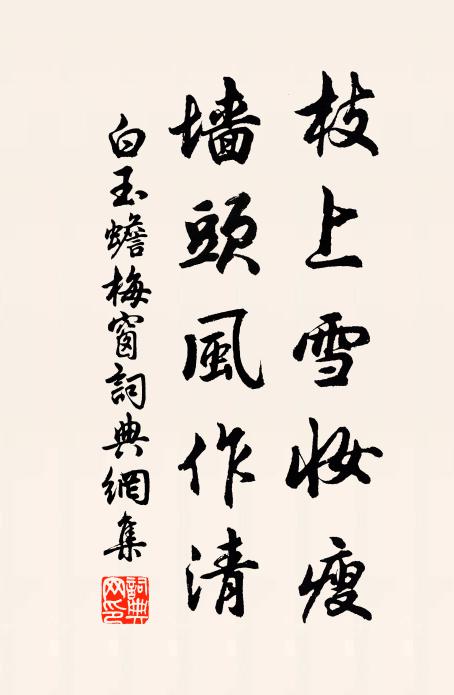 枝上雪妝瘦
墻頭風作清
白玉蟾梅窗詞典網集